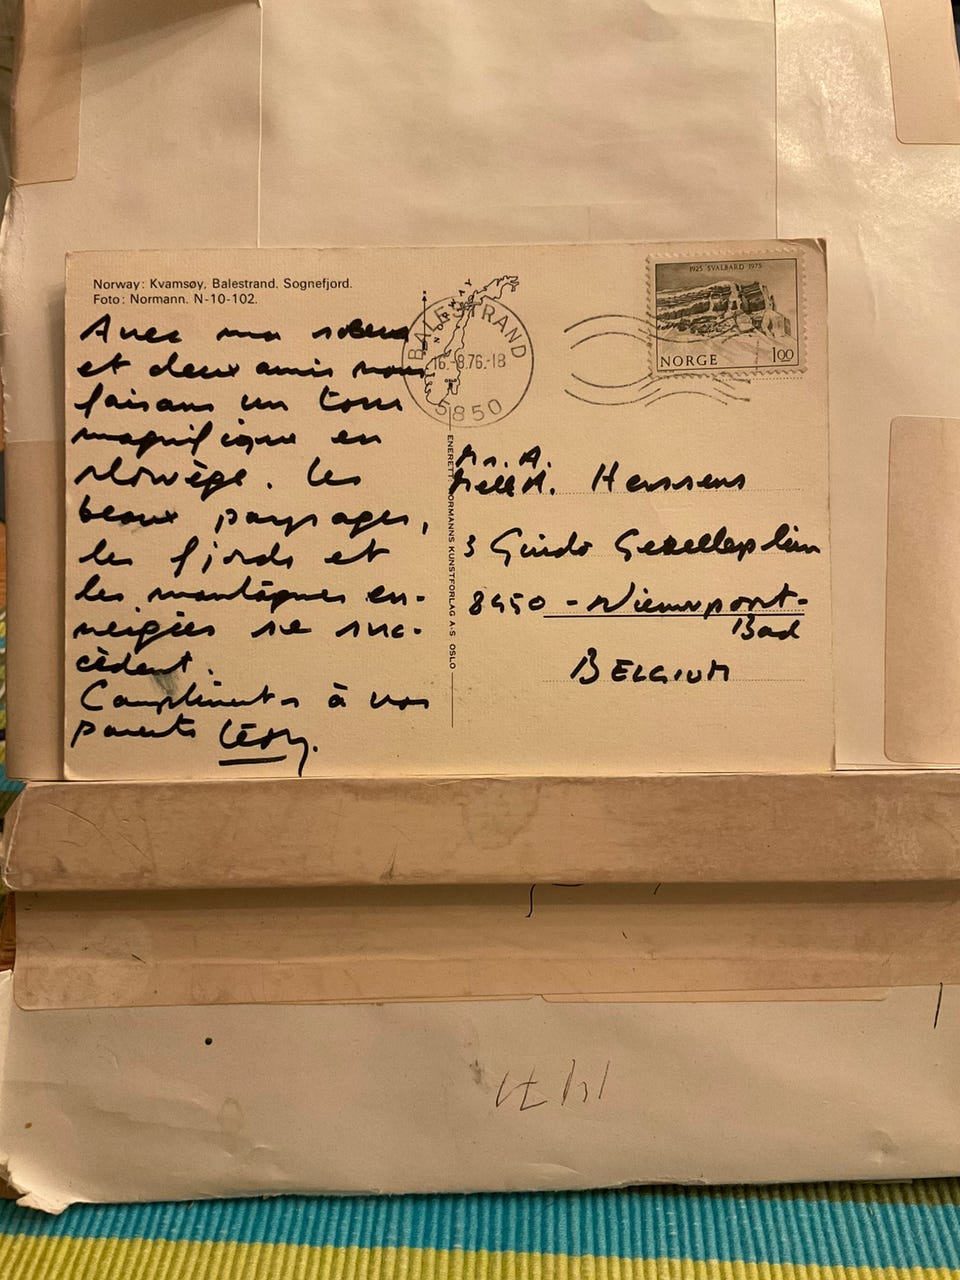 Norway: Kvamsøy, Balestrand. Sognefjord.
Foto: Normann. N-10-102.
Avec ma soeur
et deux amis nous
faisons un tour
magnifique en
Norvège. Les
beaux paysages,
les fjords et
les montagnes en-
neigées se suc-
cèdent.
Compliments à vos
parents Léon.
NORWAY
BALESTRAND
16.-8.76.-18
5850
ENERETT NORMANNS KUNSTFORLAG A-S OSLO
1925 SVALBARD 1975
NORGE 100
Mr. A.
Melle M. Henssens
3 Guido Gezelleplein
8450 - Nieuwpoort-
Bad
BELGIUM